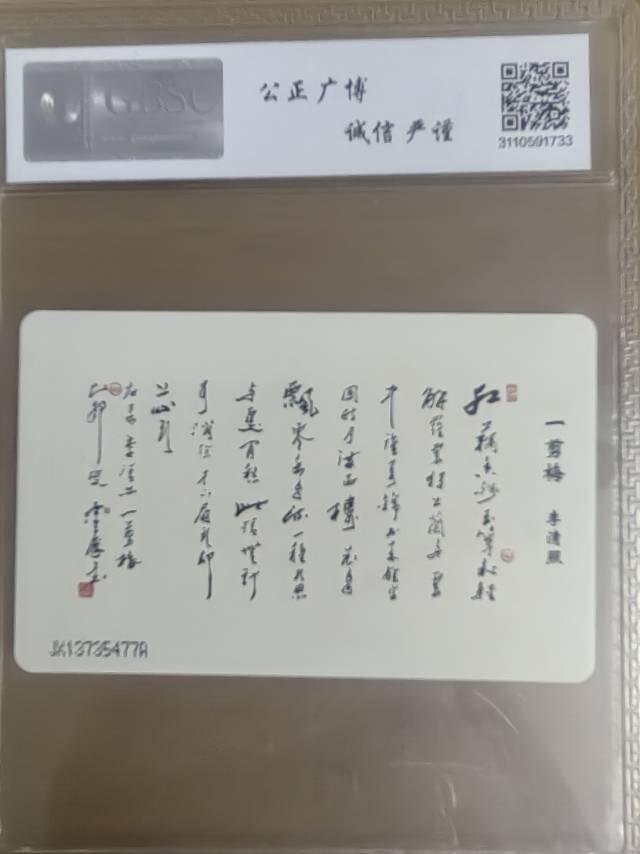 GBSC
公正广博
诚信严谨
3110591733
一剪梅 李清照
红藕香残玉簟秋轻
解罗裳独上兰舟云
中谁寄锦书来雁字
回时月满西楼花自
飘零水自流一种相思
两处闲愁此情无计
可消除才下眉头却
上心头
一剪梅
JK13735477A